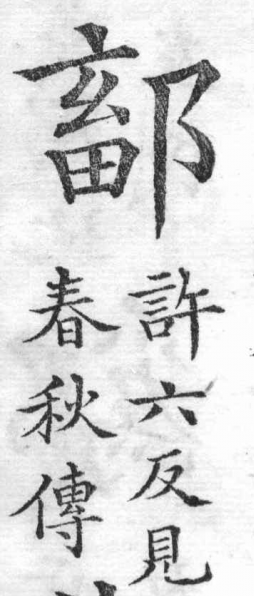 鄐
許六反見
春秋傳